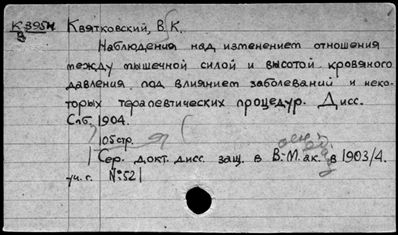 К 395н Квятковский, В. К.
В
Наблюдения над изменением отношения
между мышечной силой и высотой кровяного
давления под влиянием заболеваний и неко-
торых терапевтических процедур. Дисс.
Спб. 1904.
105 стр.
Сер. докт. дисс. защ. в В.-М. ак. в 1903/4.
уч. г. №52